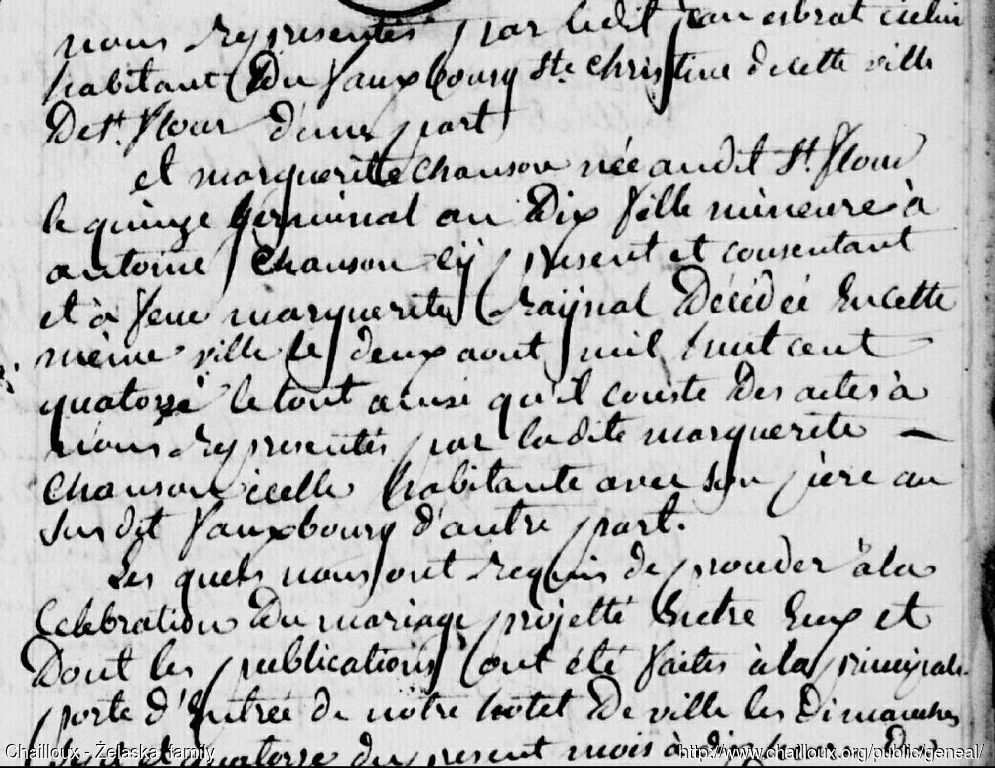 nous representés par ledit jean esbrat icelui
habitant Du fauxbourg Ste. Christine decette ville
De St. flour d'une part
et marguerite chanson née audit St. flour
le quinze germinal an Dix fille mineure à
antoine Chanson cy present et consentant
et à feue marguerite Raynal Décédée En cette
même ville le deux aout mil huit cent
quatorze le tout ainsi qu'il conste Des actes à
nous representés par ladite marguerite —
Chanson icelle habitante avec son père au
susdit fauxbourg d'autre part.
Les quels nous ont requis de proceder à la
Celebration Du mariage projetté Entre Eux et
Dont les publications ont été faites à la principale
porte d'Entrée de nôtre hotel De ville les Dimanches
et quatorze du present mois à
Chailloux - Żelaska family
http://www.chailloux.org/public/geneal/